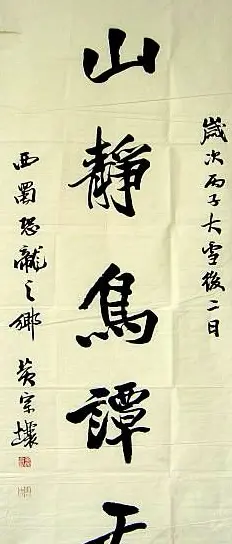 歲次丙子大雪後二日
山靜鳥譚
西蜀恐龍之鄉 黃宗壤